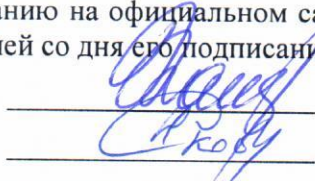 анию на официальном са
ей со дня его подписани